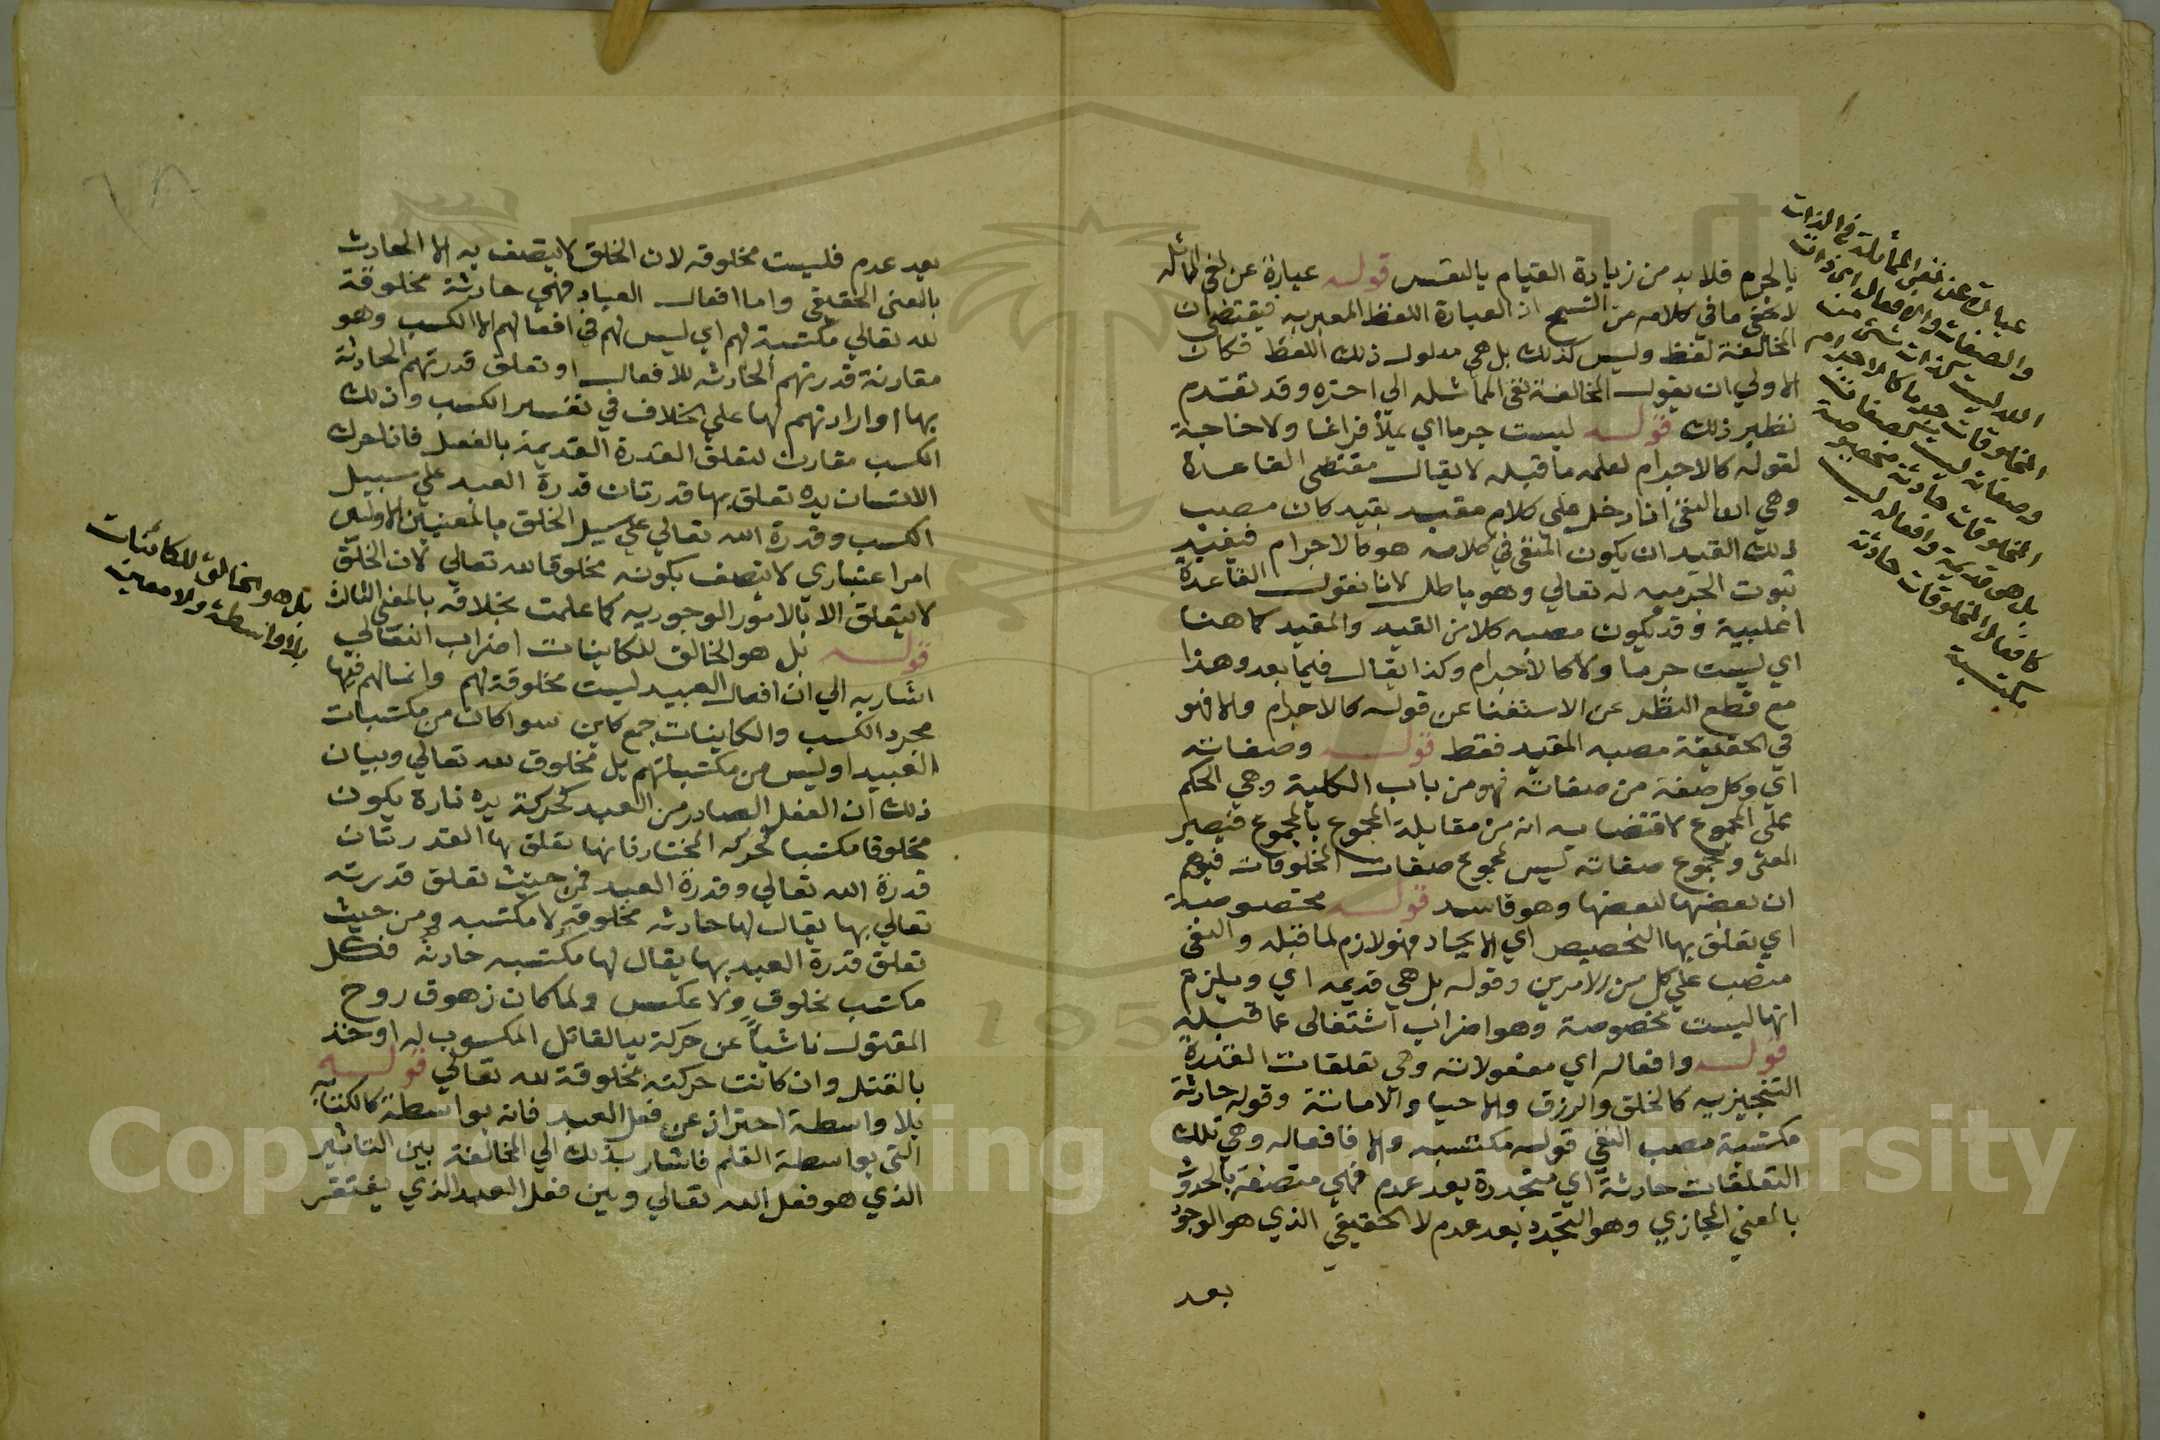 بالجرم فلا بد من زيادة القيام بالنفس قوله عبارة عن نفي المماثله
لا يخفي ما في كلامه من التسمح اذ العبارة اللفظ المعبر به فيقتضي ان
المخالفة لفظ وليس كذلك بل هي مدلول ذلك اللفظ فكان
الاولي ان يقول المخالفة نفي المماثله الي اخره وقد تقدم
نظير ذلك قوله ليست جرما اي يملأ فراغا ولا حاجة
لقوله كالاجرام لعلمه ما قبله لا يقال مقتضي القاعدة
وهي ان النفي اذا دخل علي كلام مقيد بقيد كان مصب
ذلك القيد ان يكون المنفي في كلامه هو كالاجرام فيفيد
ثبوت الجرميه له تعالي وهو باطل لانا نقول القاعدة
اغلبية وقد يكون مصبه كلا من القيد والمقيد كما هنا
اي ليست جرما ولا كالاجرام وكذا يقال فيما بعد وهذا
مع قطع النظر عن الاستغنا عن قوله كالاجرام والا فهو
في الحقيقة مصبه المقيد فقط قوله وصفاته
اي وكل صفة من صفاته فهو من باب الكلية وهي الحكم
علي المجموع لاقتضايه انه من مقابلة المجموع بالمجموع فيصير
المعنى ومجموع صفاته ليس كمجموع صفات المخلوقات فيوهم
ان بعضها كبعضها وهو فاسد قوله مخصوصة
اي تعلق بها التخصيص اي الايجاد فهو لازم لما قبله والنفي
منصب علي كل من الامرين وقوله بل هي قديمه اي ويلزم
انها ليست مخصوصة وهو اضراب انتقالي عما قبله
قوله وافعاله اي مفعولاته وهي تعلقات القدرة
التنجيزيه كالخلق والرزق والاحيا والاماتة وقوله حادثة
مكتسبة مصب النفي قوله مكتسبه والا فافعاله وهي تلك
التعلقات حادثة اي متجددة بعد عدم فهي متصفة بالحدوث
بالمعني المجازي وهو التجدد بعد عدم لا الحقيقي الذي هو الوجود
بعد
عبارة عن نفي المماثلة في الذات
والصفات والافعال اي ذات
الله ليست كذات شئ من
المخلوقات جرما كالاجرام
وصفاته ليست كصفات
المخلوقات حادثة مخصوصة
بل هو قديمة وافعاله ليست
كافعال المخلوقات حادثة
مكتسبة
بعد عدم فليست مخلوقه لان الخلق لا يتصف به الا الحادث
بالمعني الحقيقي واما افعال العباد فهي حادثة مخلوقة
لله تعالي مكتسبة لهم اي ليس لهم في افعالهم الا الكسب وهو
مقارنة قدرتهم الحادثه للافعال او تعلق قدرتهم الحادثة
بها او ارادتهم لها علي الخلاف في تفسير الكسب واذ ذلك
الكسب مقارن لتعلق القدرة القديمة بالفعل فاذا حرك
الانسان يده تعلق بها قدرتان قدرة العبد علي سبيل
الكسب وقدرة الله تعالي علي سبيل الخلق بالمعنيين الاولين
امر اعتباري لا يتصف بكونه مخلوقا لله تعالي لان الخلق
لا يتعلق الا بالامور الوجوديه كما علمت بخلافه بالمعني الثالث
قوله بل هو الخالق للكاينات اضراب انتقالي
اشار به الي ان افعال العبيد ليست مخلوقة لهم وانما لهم فيها
مجرد الكسب والكاينات جمع كاين سوا كان من مكتسبات
العبيد او ليس من مكتسباتهم بل مخلوق لله تعالي وبيان
ذلك ان الفعل الصادر من العبد كحركة يده تارة يكون
مخلوقا مكتسبا كحركه المختار فانها تعلق بها القدرتان
قدرة الله تعالي وقدرة العبد فمن حيث تعلق قدرته
تعالي بها يقال لها حادثه مخلوقة لا مكتسبه ومن حيث
تعلق قدرة العبد بها يقال لها مكتسبه حادثة فكل
مكتسب مخلوق ولا عكس ولما كان زهوق روح
المقتول ناشيا عن حركة يد القاتل المكسوب له اوخذ
بالقتل وان كانت حركته مخلوقة لله تعالي قوله
بلا واسطة احتراز عن فعل العبد فانه بواسطة كالكتابة
التي بواسطة القلم فاشار بذلك الي المخالفة بين التاثير
الذي هو فعل الله تعالي وبين فعل العبد الذي يفتقر
بل هو الخالق للكائنات
بلا واسطة ولا معين
Copyright © King Saud University